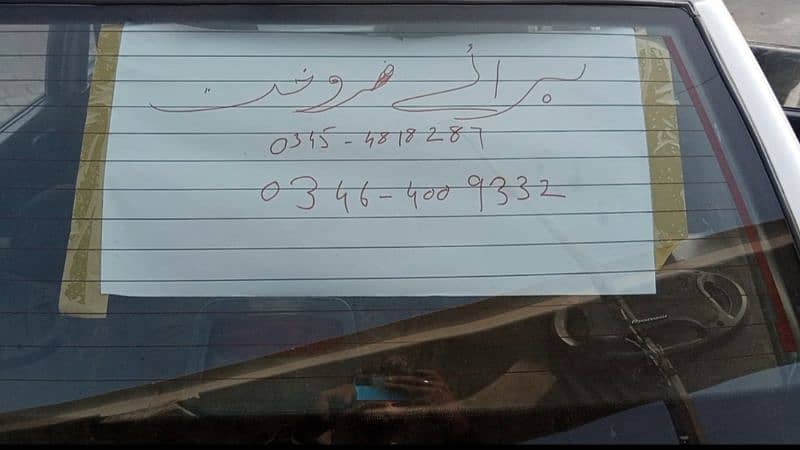 برائے فروخت
0345-4818287
0346-4009332